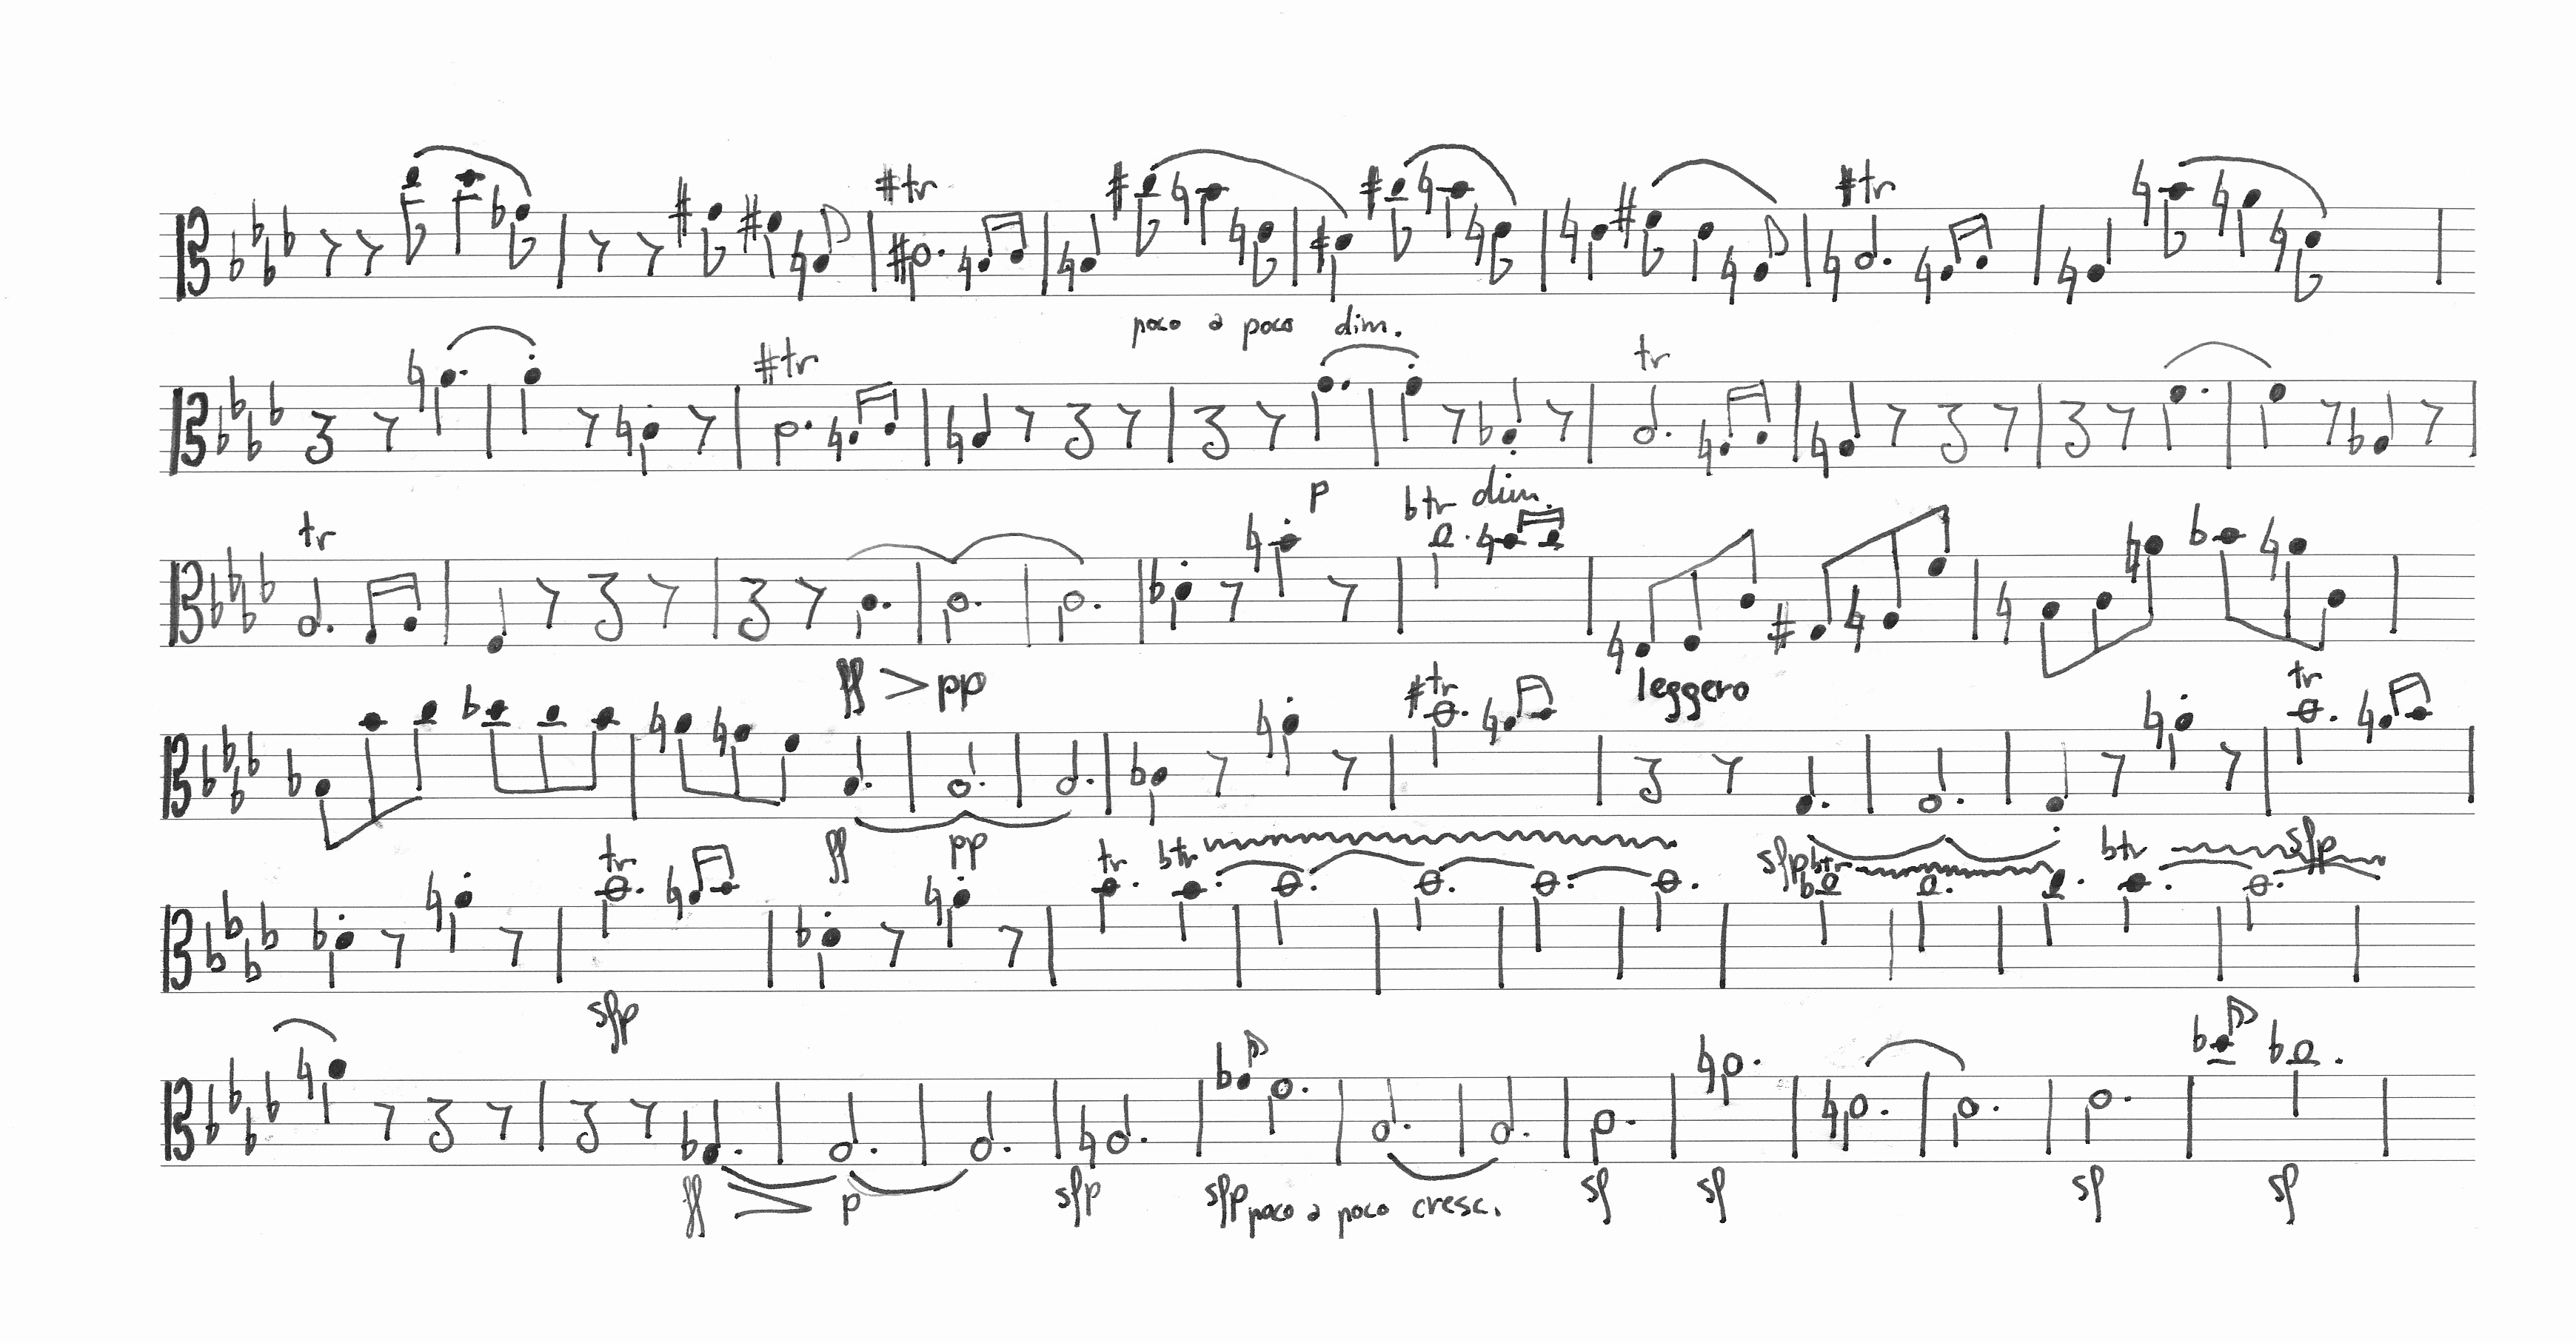 tr tr
poco a poco dim.
tr tr
p
tr btr dim.
ff pp leggero
tr tr
ff pp
tr tr btr sfp btr btr sfp
sfp
ff p sfp sfp poco a poco cresc. sf sf sf sf